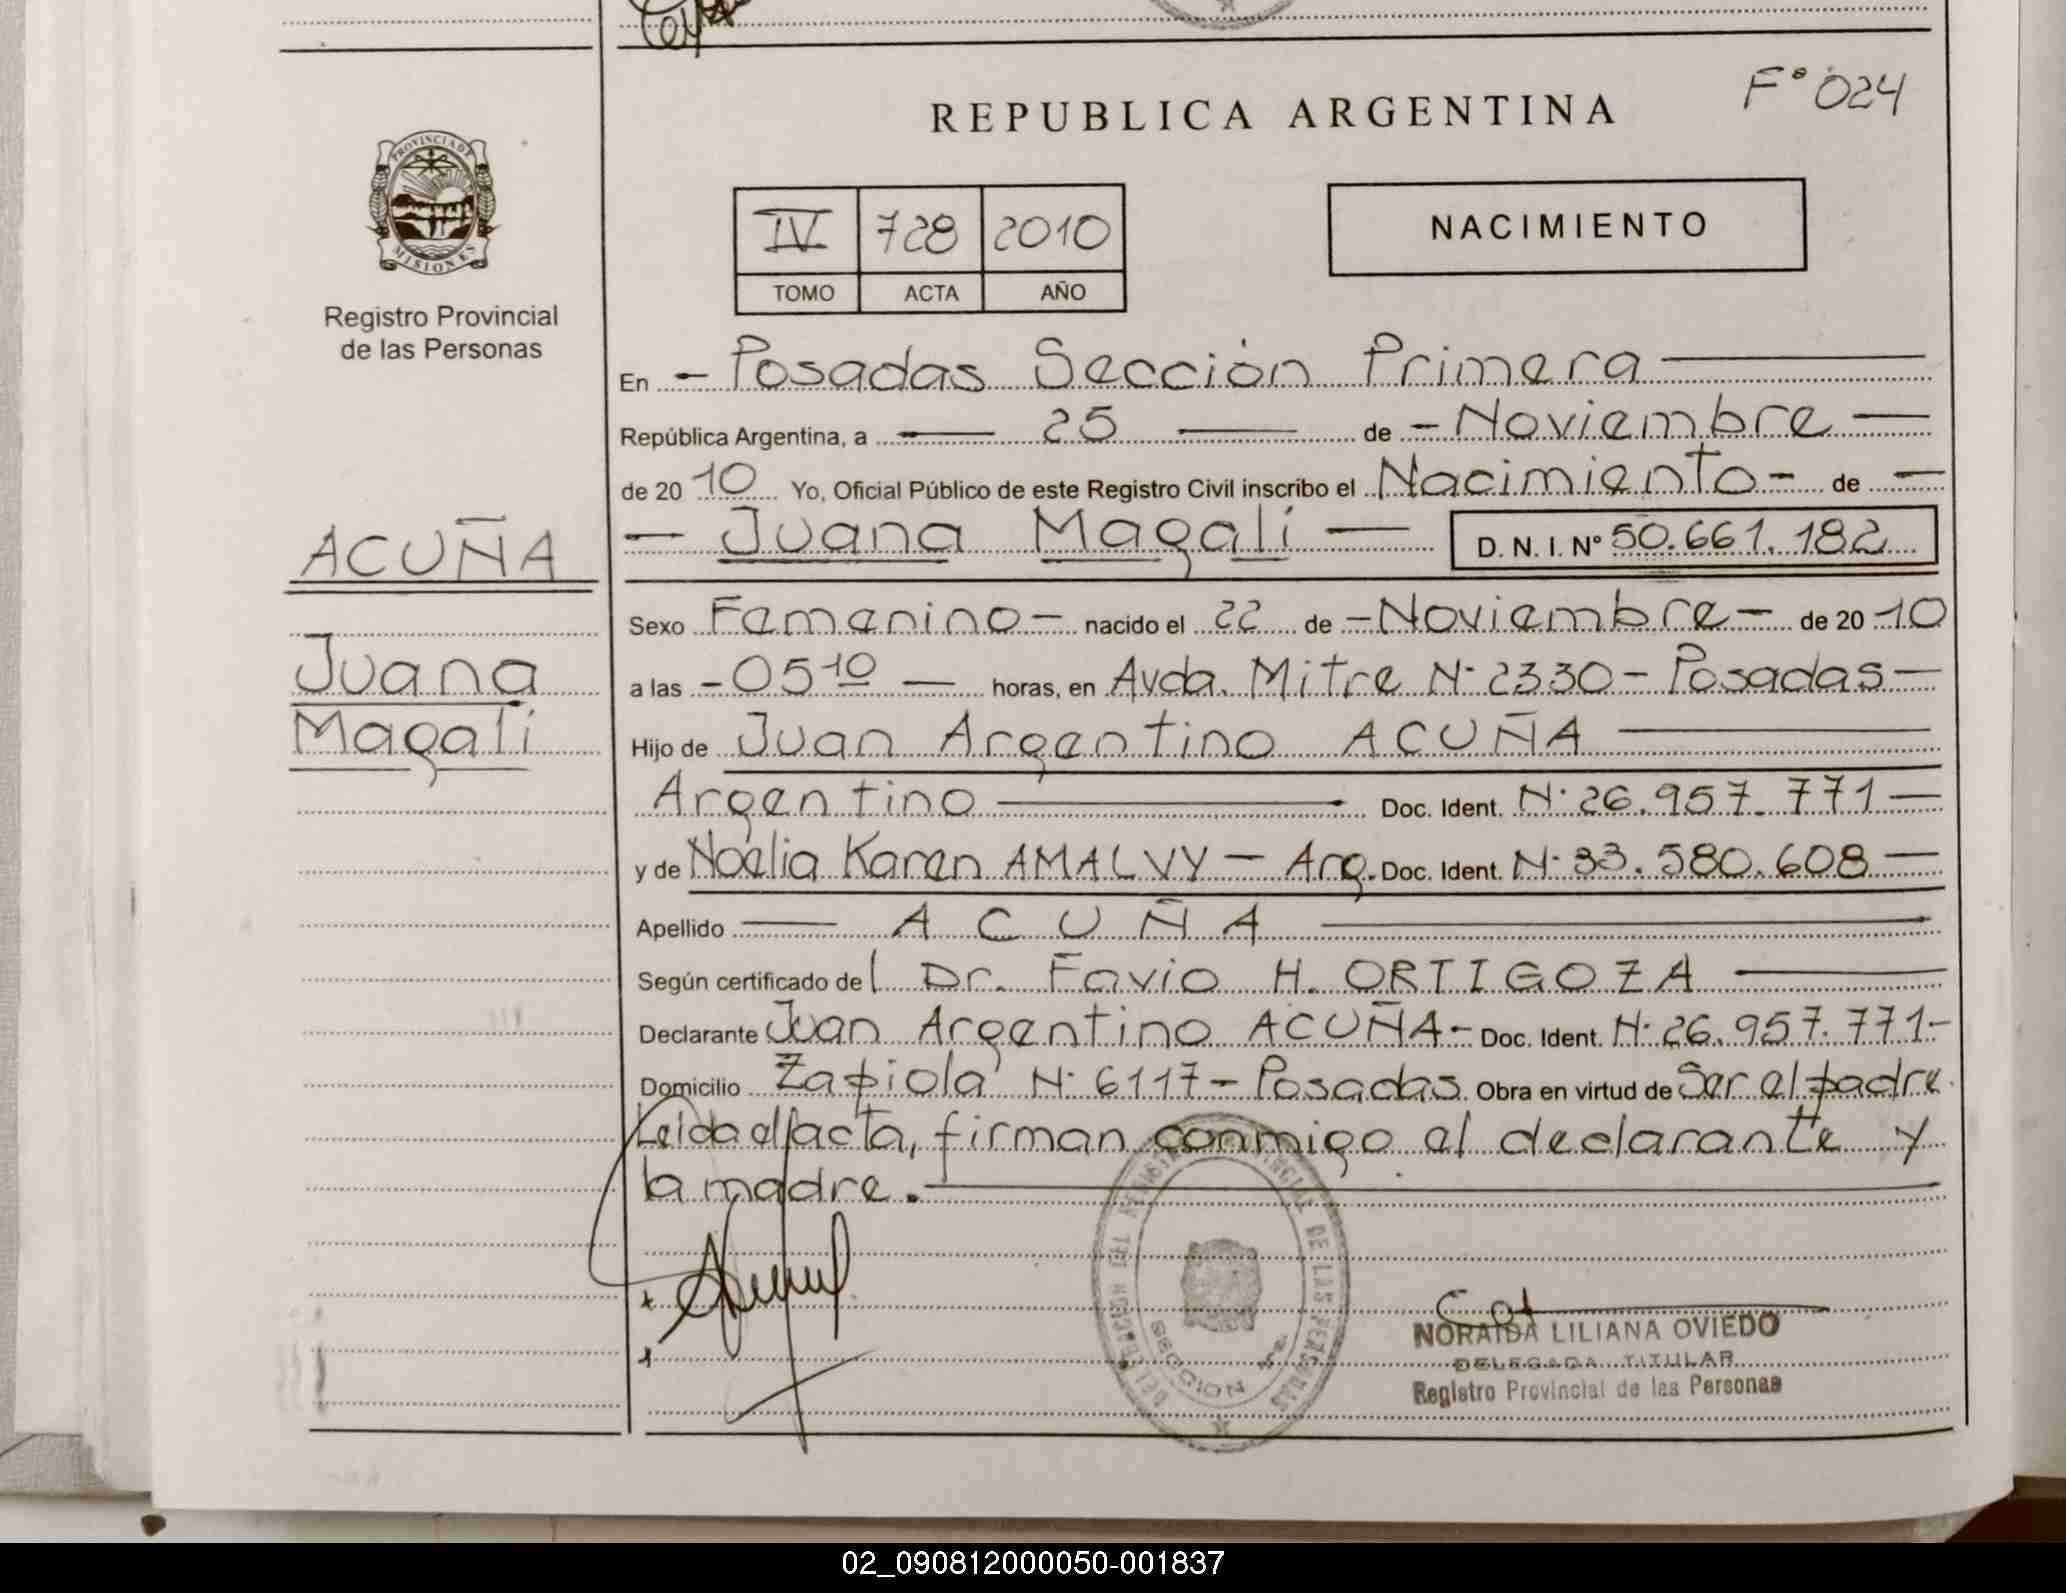 F° 024
REPUBLICA ARGENTINA
PROVINCIA DE
MISIONES
Registro Provincial
de las Personas
IV 728 2010
TOMO ACTA AÑO
NACIMIENTO
En - Posadas Sección Primera
República Argentina, a 25 de - Noviembre
de 20 10 Yo, Oficial Público de este Registro Civil inscribo el Nacimiento - de -
- Juana Magalí - D. N. I. N° 50.661.182
ACUÑA
Juana
Magalí
Sexo Femenino - nacido el 22 de - Noviembre - de 20 10
a las - 05 10 - horas, en Avda. Mitre N° 2330 - Posadas -
Hijo de Juan Argentino ACUÑA
Argentino Doc. Ident. N° 26.957.771 -
y de Noelia Karen AMALVY - Arg. Doc. Ident. N° 33.580.608 -
Apellido - ACUÑA
Según certificado del Dr. Favio H. ORTIGOZA
Declarante Juan Argentino ACUÑA - Doc. Ident. N° 26.957.771 -
Domicilio Zapiola N° 6117 - Posadas Obra en virtud de Ser el padre.
Leida el acta, firman conmigo el declarante y
la madre.
DELEGACION DEL REGISTRO PROVINCIAL DE LAS PERSONAS
SECCION 1ra.
NORAIDA LILIANA OVIEDO
DELEGADA TITULAR
Registro Provincial de las Personas
02_090812000050-001837